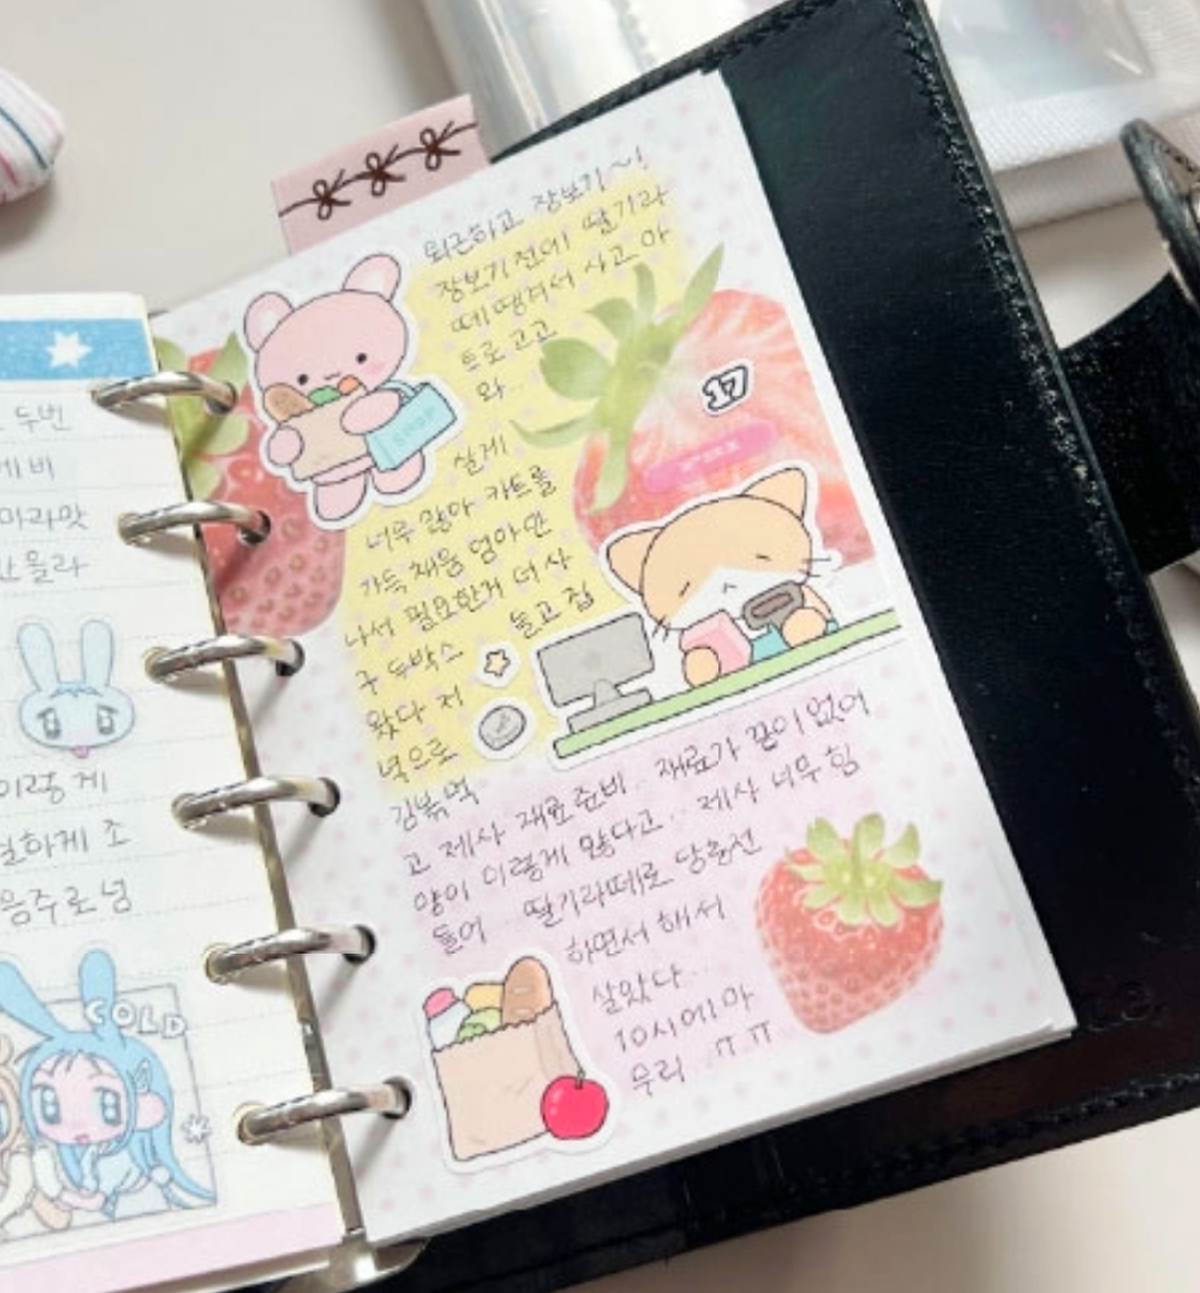 두번
게 비
마라맛
안 올라
이렇 게
조
음주로 넘
COLD
퇴근하고 장보기~!
장보기 전에 딸기라
떼 땡겨서 사고 마
트로 고고
와..
살게
너무 많아 카트를
가득 채움 엄마 안
나서 필요한거 더 사
구 두박스 들고 집
왔다 저
녁으로
김볶 먹
고 제사 재료 준비.. 재료가 끝이 없어
양이 이렇게 많다고.. 제사 너무 힘
들어 딸기라떼로 당충전
하면서 해서
살았다..
10시에 마
무리 ㅠㅠ
17